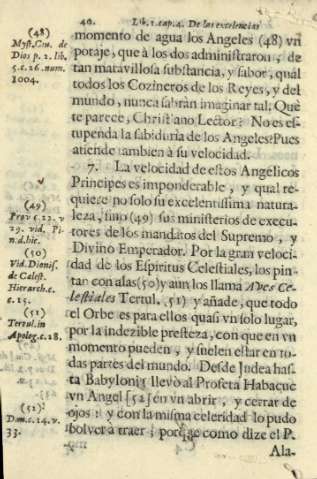 40. Lib. 1. cap. 4. De las excelencias
momento de agua los Angeles (48) vn
potaje, que à los dos administraron, de
tan maravillosa substancia, y sabor, quàl
todos los Cozineros de los Reyes, y del
mundo, nunca sabràn imaginar tal: Què
te parece, Christiano Lector? No es es-
tupenda la sabiduria de los Angeles? Pues
atiende tambien à su velocidad.
7. La velocidad de estos Angelicos
Principes es imponderable, y qual re-
quiere no solo su excelentissima natura-
leza, sino (49) sus ministerios de execu-
tores de los mandatos del Supremo, y
Divino Emperador. Por la gran veloci-
dad de los Espiritus Celestiales, los pin-
tan con alas (50) y aun los llama Aves Ce-
lestiales Tertul. (51) y añade, que todo
el Orbe es para ellos quasi vn solo lugar,
por la indezible presteza, con que en vn
momento pueden, y suelen estar en to-
das partes del mundo. Desde Judea has-
ta Babylonia llevò al Profeta Habacuc
vn Angel [52] en vn abrir, y cerrar de
ojos: y con la misma celeridad lo pudo
bolver à traer; porque como dize el P.
Ala-
(48)
Myst. Ciu. de
Dios p. 2. lib.
5. c. 26. num.
1004.
(49)
Prov c. 22. v
29. vid. Pi-
n.d. hic.
(50)
Vid. Dionis.
de Calest.
Hierarch. c.
c. 15.
(51)
Tertul. in
Apolog. c. 28.
(52)
Dan. c. 14. v.
33.